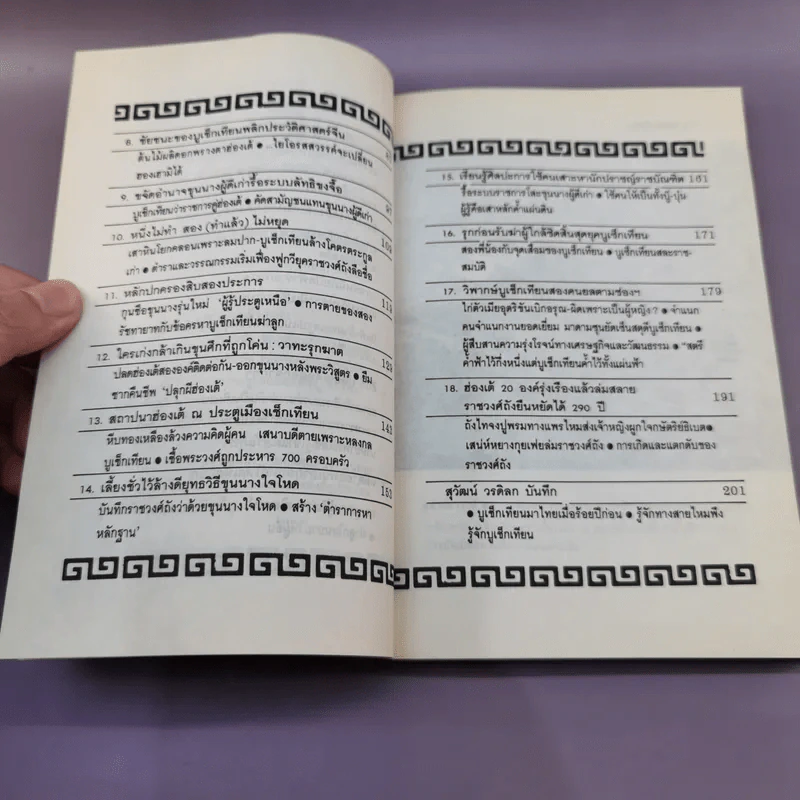 8. ชัยชนะของบูเช็กเทียนพลิกประวัติศาสตร์จีน
ต้นไม้ผลิดอกพรางตาฮ่องเต้ ● ...ไยโอรสสวรรค์จะเปลี่ยน
ฮองเฮามิได้
9. ขจัดอำนาจขุนนางผู้ดีเก่ารื้อระบบลัทธิขงจื้อ
บูเช็กเทียนว่าราชการคู่ฮ่องเต้ ● คัดสามัญชนแทนขุนนางผู้ดีเก่า
10. หนึ่งไม่ทำ สอง (ทำแล้ว) ไม่หยุด
เสาหินโยกคลอนเพราะลมปาก-บูเช็กเทียนล้างโคตรตระกูล
เก่า ● ตำราและวรรณกรรมเริ่มเฟื่องฟูทวียุคราชวงศ์ถังลือชื่อ
11. หลักปกครองสิบสองประการ
กุนซือขุนนางรุ่นใหม่ 'ผู้รู้ประตูเหนือ' ● การตายของสอง
รัชทายาทกับข้อครหาบูเช็กเทียนฆ่าลูก
12. ใครเก่งกล้าเกินขุนศึกที่ถูกโค่น : วาทะรุกฆาต
ปลดฮ่องเต้สององค์ติดต่อกัน-ออกขุนนางหลังพระวิสูตร ● ยืม
ซากคืนชีพ 'ปลุกผีฮ่องเต้'
13. สถาปนาฮ่องเต้ ณ ประตูเมืองเช็กเทียน 143
หีบทองเหลืองล้วงความคิดผู้คน เสนาบดีตายเพราะหลงกล
บูเช็กเทียน ● เชื้อพระวงศ์ถูกประหาร 700 ครอบครัว
14. เลี้ยงชั่วไว้ล้างดียุทธวิธีขุนนางใจโหด 153
บันทึกราชวงศ์ถังว่าด้วยขุนนางใจโหด ● สร้าง 'ตำราการหา
หลักฐาน'
15. เรียนรู้ศิลปะการใช้คนเสาะหานักปราชญ์ราชบัณฑิต 161
รื้อระบบราชการโละขุนนางผู้ดีเก่า ● ใช้คนให้เป็นทั้งบู๊-บุ๋น
ผู้รู้คือเสาหลักค้ำแผ่นดิน
16. รุกก่อนรับฆ่าผู้ใกล้ชิดสิ้นสุดยุคบูเช็กเทียน 171
สองพี่น้องกับจุดเสื่อมของบูเช็กเทียน ● บูเช็กเทียนสละราช-
สมบัติ
17. วิพากษ์บูเช็กเทียนสองคนยลตามช่องฯ 179
ไก่ตัวเมียอุตริขันเบิกอรุณ-ผิดเพราะเป็นผู้หญิง? ● จำแนก
คนจำแนกงานยอดเยี่ยม มาดามซุนยัดเซ็นสดุดีบูเช็กเทียน ●
ผู้สืบสานความรุ่งโรจน์ทางเศรษฐกิจและวัฒนธรรม ● "สตรี
ค้ำฟ้าไว้กึ่งหนึ่งแต่บูเช็กเทียนค้ำไว้ทั้งแผ่นฟ้า
18. ฮ่องเต้ 20 องค์รุ่งเรืองแล้วล่มสลาย
ราชวงศ์ถังยืนหยัดได้ 290 ปี 191
ถังไทจงปูพรมทางแพรไหมส่งเจ้าหญิงผูกใจกษัตริย์ธิเบต ●
เสน่ห์หยางกุยเฟยล่มราชวงศ์ถัง ● การเกิดและแตกดับของ
ราชวงศ์ถัง
สุวัฒน์ วรดิลก บันทึก 201
● บูเช็กเทียนมาไทยเมื่อร้อยปีก่อน ● รู้จักทางสายไหมพึง
รู้จักบูเช็กเทียน